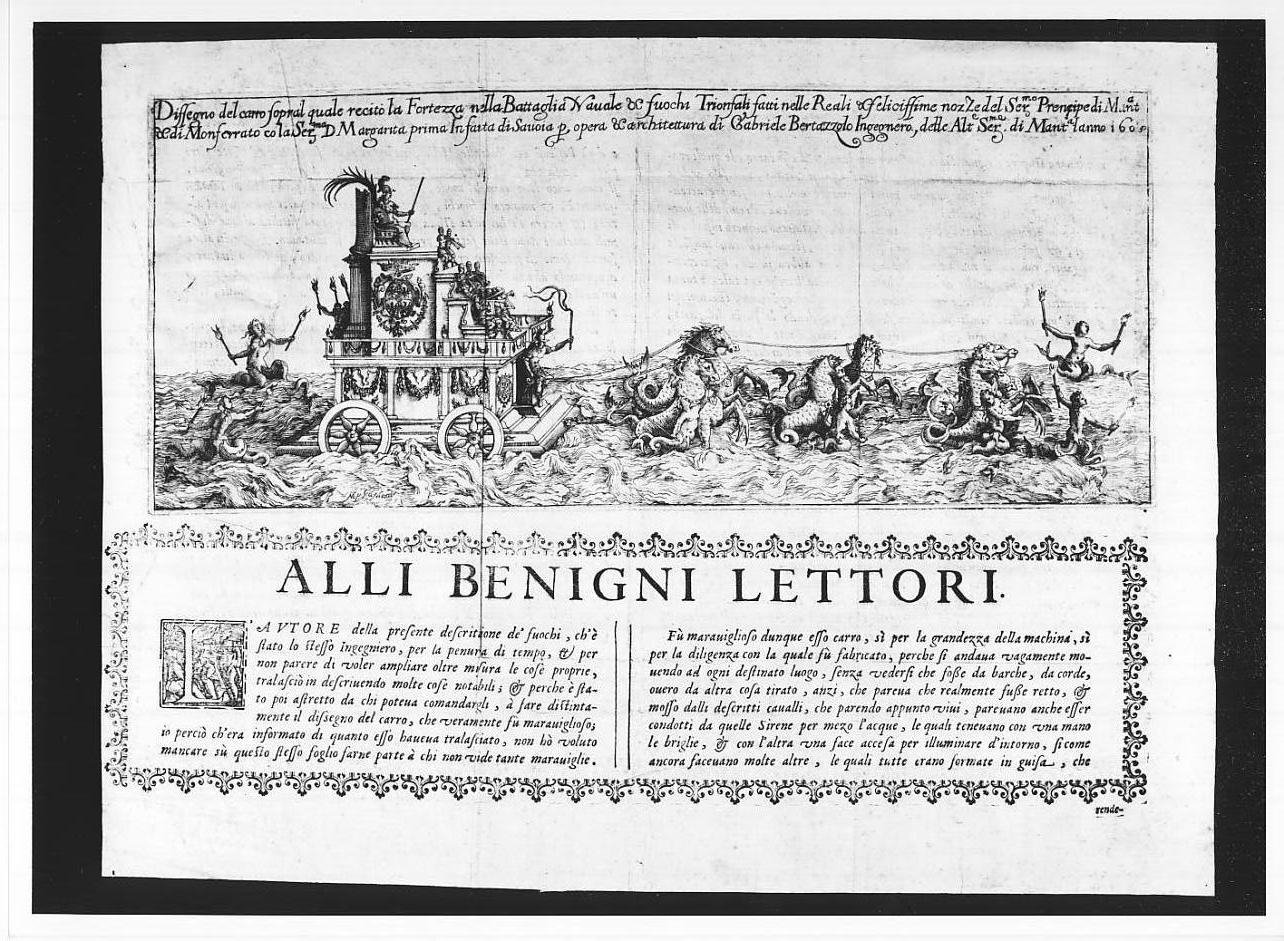 Dissegno del carro sopra'l quale recitò la Fortezza nella Battaglia Nauale & fuochi Trionfali fatti nelle Reali & felicissime nozze del Ser.mo Prencipe di Mant.a
& di Monferrato cō la Ser.ma D. Margarita prima Infanta di Sauoia p opera & architettura di Gabriele Bertazzolo Ingegnero delle Alt.e Ser.me di Mant.a l'anno
ALLI BENIGNI LETTORI.
L'AVTORE della presente descrittione de' fuochi, ch'è
stato lo stesso Ingegniero, per la penuria di tempo, & per
non parere di voler ampliare oltre misura le cose proprie,
tralasciò in descriuendo molte cose notabili; & perche è sta-
to poi astretto da chi poteua comandargli, à fare distinta-
mente il dissegno del carro, che veramente fù marauiglioso;
io perciò ch'era informato di quanto esso haueua tralasciato, non hò voluto
mancare sù questo stesso foglio farne parte à chi non vide tante marauiglie.
Fù marauiglioso dunque esso carro, sì per la grandezza della machina, sì
per la diligenza con la quale fù fabricato, perche si andaua vagamente mo-
uendo ad ogni destinato luogo, senza vedersi che fosse da barche, da corde,
ouero da altra cosa tirato, anzi, che pareua che realmente fusse retto, &
mosso dalli descritti caualli, che parendo appunto viui, pareuano anche esser
condotti da quelle Sirene per mezo l'acque, le quali teneuano con vna mano
le briglie, & con l'altra vna face accesa per illuminare d'intorno, sicome
ancora faceuano molte altre, le quali tutte erano formate in guisa, che
rende-